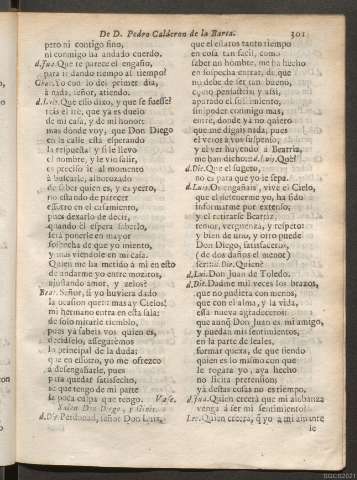 De D. Pedro Calderon de la Barca. 301
pero ni contigo fino,
ni conmigo ha andado cuerdo.
d.Jua. Que te parece el engaño,
para ir dando tiempo al tiempo?
Yo con lo del primer dia,
à nada, señor, atiendo.
d.Luis. Que esso dixo, y que se fuesse?
tràs èl irè, que ya es duelo
de mi casa, y de mi honor:
mas donde voy, que Don Diego
en la calle està esperando
la respuesta? y si le llevo
el nombre, y le vè salir,
es preciso ir al momento
à buscarle, alborozado
de saber quien es, y es yerro,
no estando de parecer
estotro en el casamiento,
pues dexarlo de decir,
quando èl espera saberlo,
serà ponerle en mayor
sospecha de que yo miento,
y mas viendole en mi casa.
Quien me ha metido à mi en esto
de andarme yo entre mozitos,
ajustando amor, y zelos?
Bea. Señor, si yo huviera dado
la ocasion quereis mas ay Cielos!
mi hermano entra en esta sala:
de solo mirarle tiemblo,
pues ya sabeis vos quien es,
decidselo, asseguremos
lo principal de la duda;
que en estotro, yo me ofrezco
à desengañarle, pues
para quedar satisfecho,
le que tengo de mi parte
la poca culpa que tengo. Vase.
Salen Don Diego, y Ginès.
d.Die. Perdonad, señor Don Luis,
que el estaros tanto tiempo
en cosa tan facil, como
saber un hombre, me ha hecho
en sospecha entrar, de que
no debe de ser tan bueno,
como pensasteis; y assi,
apurado el sufrimiento,
sin poder conmigo mas,
entro, donde ya no quiero
que me digais nada, pues
el veros à vos suspenso,
y el ver huyendo à Beatriz,
me han dicho: d.Luis. Què?
d.Die. Que el sugeto,
no es para que yo le sepa.
d.Luis. Os engañais, vive el Cielo,
que el detenerme yo, ha sido
informarme por extenso,
y el retirarse Beatriz,
temor, verguenza, y respeto:
y bien de uno, y otro puede
Don Diego, satisfaceros,
( de dos daños el menor )
serviria. Die. Quien?
d.Lui. Don Juan de Toledo.
d.Die. Dadme mil veces los brazos,
que no pudiera con menos,
que con el alma, y la vida,
essa nueva agradeceros:
que aunq Don Juan es mi amigo,
y puedan mis sentimientos,
en la parte de leales,
formar quexa, de que siendo
quien es lo mismo con que
le rogara yo, aya hecho
no licita pretension;
ya destas cosas no es tiempo.
d.Jua. Quien creerà que mi alabanza
venga à ser mi sentimiento!
Leo. Quien creerà, q yo à mi amante
le